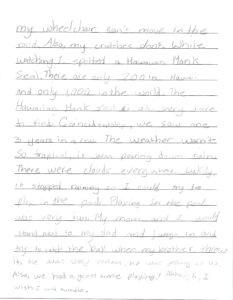 my wheelchair can't move in the
sand. Also, my crutches don't. While
watching I spotted a Hawaiian Monk
Seal. There are only 200 in Hawaii
and only 1,100 in the world. The
Hawaiian Monk Seal is also very rare
to find. Coincidentaly, we saw one
3 years in a row. The weather wasn't
so tropical, it was pouring down rain.
There were clouds everywhere. Luckily,
it stopped raining so I could try to
play in the pool. Playing in the pool
was very fun. My mom and I would
stand next to my dad and jump in and
try to the ball when my brother threw
it. He was very
Also, we had a great time playing!
wish I could